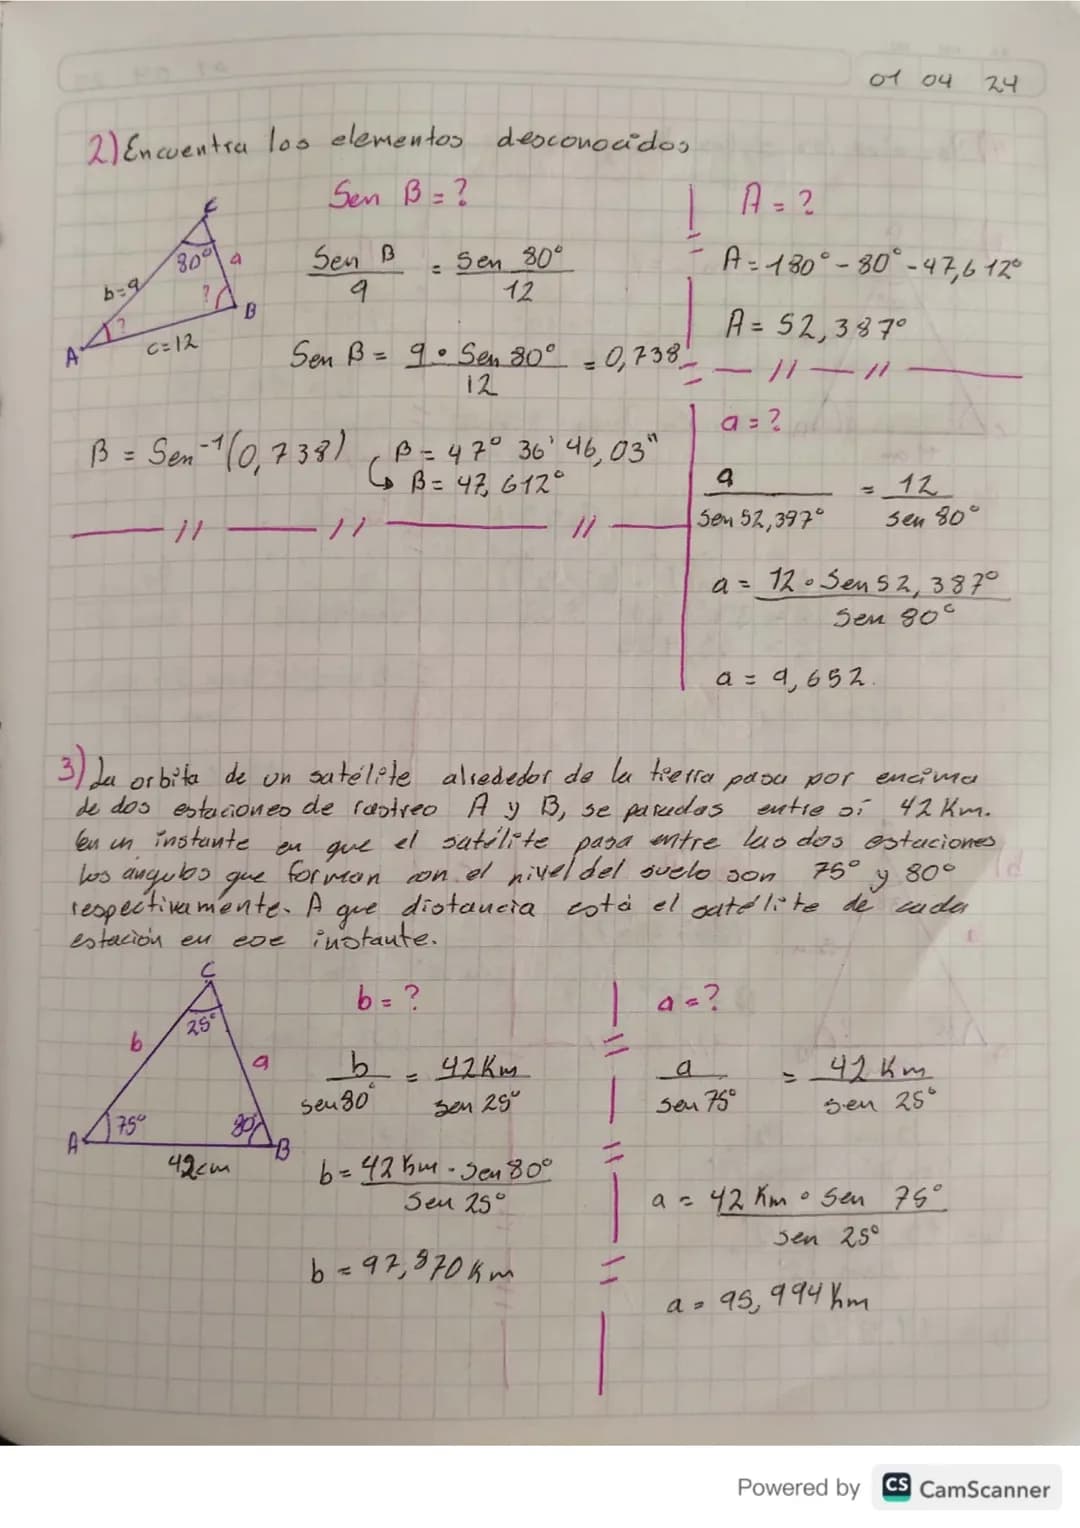 01 04 24
2) Encuentra los elementos desconocidos
Sen B = ?
Sen B / 9 = Sen 80° / 12
Sen B = 9 • Sen 80° / 12 = 0,738
B = Sen⁻¹(0,738)
B = 47° 36' 46,03"
↳ B = 47,612°
C
80°
a
b=9
?
B
?
A
c=12
A = ?
A = 180° - 80° - 47,612°
A = 52,387°
a = ?
a / Sen 52,397° = 12 / Sen 80°
a = 12 • Sen 52,387° / Sen 80°
a = 9,652.
3) La orbita de un satélite alrededor de la tierra pasa por encima
de dos estaciones de rastreo A y B, se paradas entre sí 42 Km.
En un instante en que el satélite pasa entre las dos estaciones
los angulos que forman con el nivel del suelo son 75° y 80°
respectivamente. A que distancia está el satélite de cada
estación en ese instante.
C
25°
b
a
75°
80°
A
B
42cm
b = ?
b / sen 80° = 42 Km / sen 25°
b = 42 Km · Sen 80° / Sen 25°
b = 97,870 Km
a = ?
a / Sen 75° = 42 Km / Sen 25°
a = 42 Km • Sen 75° / Sen 25°
a = 95,994 Km
Powered by CS CamScanner